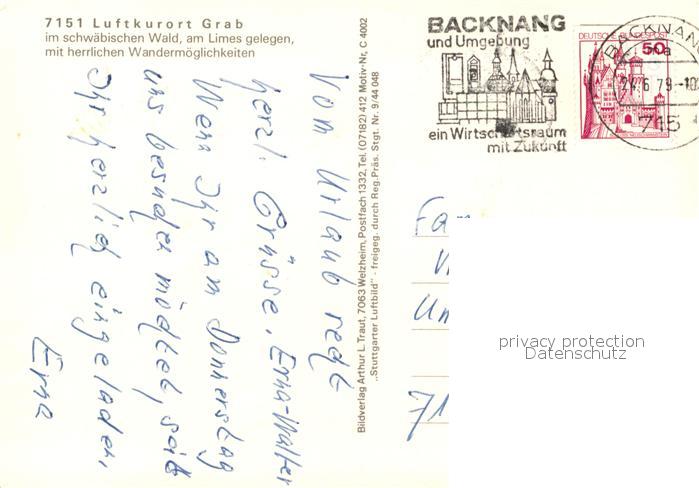 7151 Luftkurort Grab
im schwäbischen Wald, am Limes gelegen,
mit herrlichen Wandermöglichkeiten
Vom Urlaub recht
herzl. Grüsse, Erna-Walter
Wenn Ihr am Donnerstag
uns besuchen möchtet, seit
Ihr herzlich eingeladen.
Erna
Bildverlag Arthur L. Traut, 7063 Welzheim, Postfach 1332, Tel. (07182) 412 Motiv-Nr. C 4002
„Stuttgarter Luftbild" - freigeg. durch Reg. Präs. Stgt. Nr. 9/44 048
BACKNANG
und Umgebung
ein Wirtschaftsraum
mit Zukunft
DEUTSCHE BUNDESPOST
50
BACKNANG
na
6 79-10
715
Fam
Un
71
privacy protection
Datenschutz